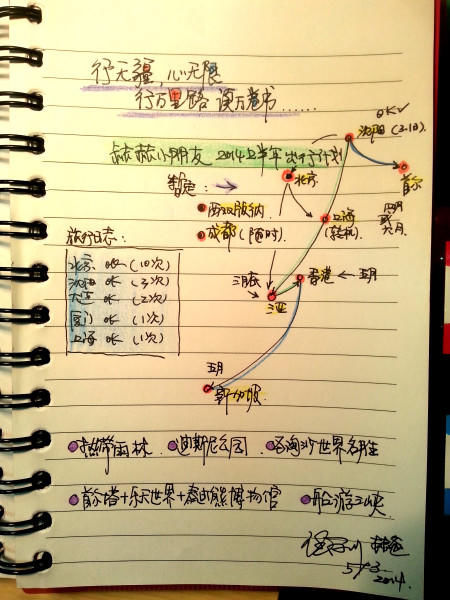 行无疆，心无限
行万里路 读万卷书……
赫赫小朋友 2014上半年出行计划
OK√
沈阳 (3.1日)
首尔
四月
或
六月
北京
暂定：→
西双版纳
成都 (随时)
上海
(转机)
旅行日志：
北京 OK (10次)
沈阳 OK (3次)
大连 OK (2次)
厦门 OK (1次)
上海 OK (1次)
三月底
三亚
香港 ← 五月
五月
新加坡
热带雨林 迪斯尼公园
世界名胜
首尔塔+乐天世界+泰迪熊博物馆
2014